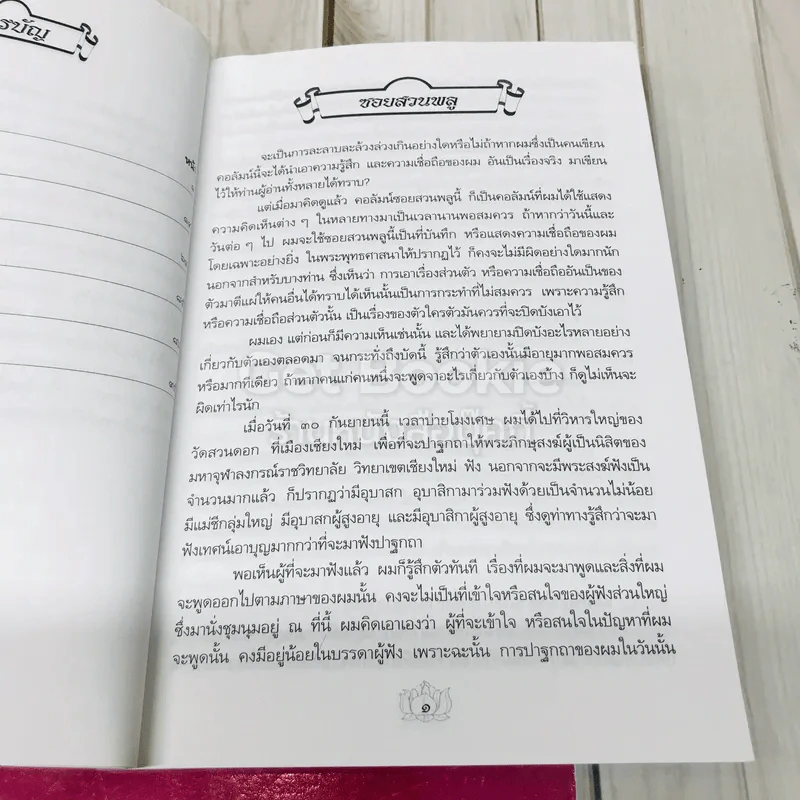 รบัญ
ซอยสวนพลู
จะเป็นการละลาบละล้วงล่วงเกินอย่างใดหรือไม่ถ้าหากผมซึ่งเป็นคนเขียน
คอลัมน์นี้จะได้นำเอาความรู้สึก และความเชื่อถือของผม อันเป็นเรื่องจริง มาเขียน
ไว้ให้ท่านผู้อ่านทั้งหลายได้ทราบ?
แต่เมื่อมาคิดดูแล้ว คอลัมน์ซอยสวนพลูนี้ ก็เป็นคอลัมน์ที่ผมได้ใช้แสดง
ความคิดเห็นต่าง ๆ ในหลายทางมาเป็นเวลานานพอสมควร ถ้าหากว่าวันนี้และ
วันต่อ ๆ ไป ผมจะใช้ซอยสวนพลูนี้เป็นที่บันทึก หรือแสดงความเชื่อถือของผม
โดยเฉพาะอย่างยิ่ง ในพระพุทธศาสนาให้ปรากฏไว้ ก็คงจะไม่มีผิดอย่างใดมากนัก
นอกจากสำหรับบางท่าน ซึ่งเห็นว่า การเอาเรื่องส่วนตัว หรือความเชื่อถืออันเป็นของ
ตัวมาตีแผ่ให้คนอื่นได้ทราบได้เห็นนั้นเป็นการกระทำที่ไม่สมควร เพราะความรู้สึก
หรือความเชื่อถือส่วนตัวนั้น เป็นเรื่องของตัวใครตัวมันควรที่จะปิดบังเอาไว้
ผมเอง แต่ก่อนก็มีความเห็นเช่นนั้น และได้พยายามปิดบังอะไรหลายอย่าง
เกี่ยวกับตัวเองตลอดมา จนกระทั่งถึงบัดนี้ รู้สึกว่าตัวเองนั้นมีอายุมากพอสมควร
หรือมากทีเดียว ถ้าหากคนแก่คนหนึ่งจะพูดจาอะไรเกี่ยวกับตัวเองบ้าง ก็ดูไม่เห็นจะ
ผิดเท่าไรนัก
เมื่อวันที่ ๓๐ กันยายนนี้ เวลาบ่ายโมงเศษ ผมได้ไปที่วิหารใหญ่ของ
วัดสวนดอก ที่เมืองเชียงใหม่ เพื่อที่จะปาฐกถาให้พระภิกษุสงฆ์ผู้เป็นนิสิตของ
มหาจุฬาลงกรณ์ราชวิทยาลัย วิทยาเขตเชียงใหม่ ฟัง นอกจากจะมีพระสงฆ์ฟังเป็น
จำนวนมากแล้ว ก็ปรากฏว่ามีอุบาสก อุบาสิกามาร่วมฟังด้วยเป็นจำนวนไม่น้อย
มีแม่ชีกลุ่มใหญ่ มีอุบาสกผู้สูงอายุ และมีอุบาสิกาผู้สูงอายุ ซึ่งดูท่าทางรู้สึกว่าจะมา
ฟังเทศน์เอาบุญมากกว่าที่จะมาฟังปาฐกถา
พอเห็นผู้ที่จะมาฟังแล้ว ผมก็รู้สึกตัวทันที เรื่องที่ผมจะมาพูดและสิ่งที่ผม
จะพูดออกไปตามภาษาของผมนั้น คงจะไม่เป็นที่เข้าใจหรือสนใจของผู้ฟังส่วนใหญ่
ซึ่งมานั่งชุมนุมอยู่ ณ ที่นี้ ผมคิดเอาเองว่า ผู้ที่จะเข้าใจ หรือสนใจในปัญหาที่ผม
จะพูดนั้น คงมีอยู่น้อยในบรรดาผู้ฟัง เพราะฉะนั้น การปาฐกถาของผมในวันนั้น
๑